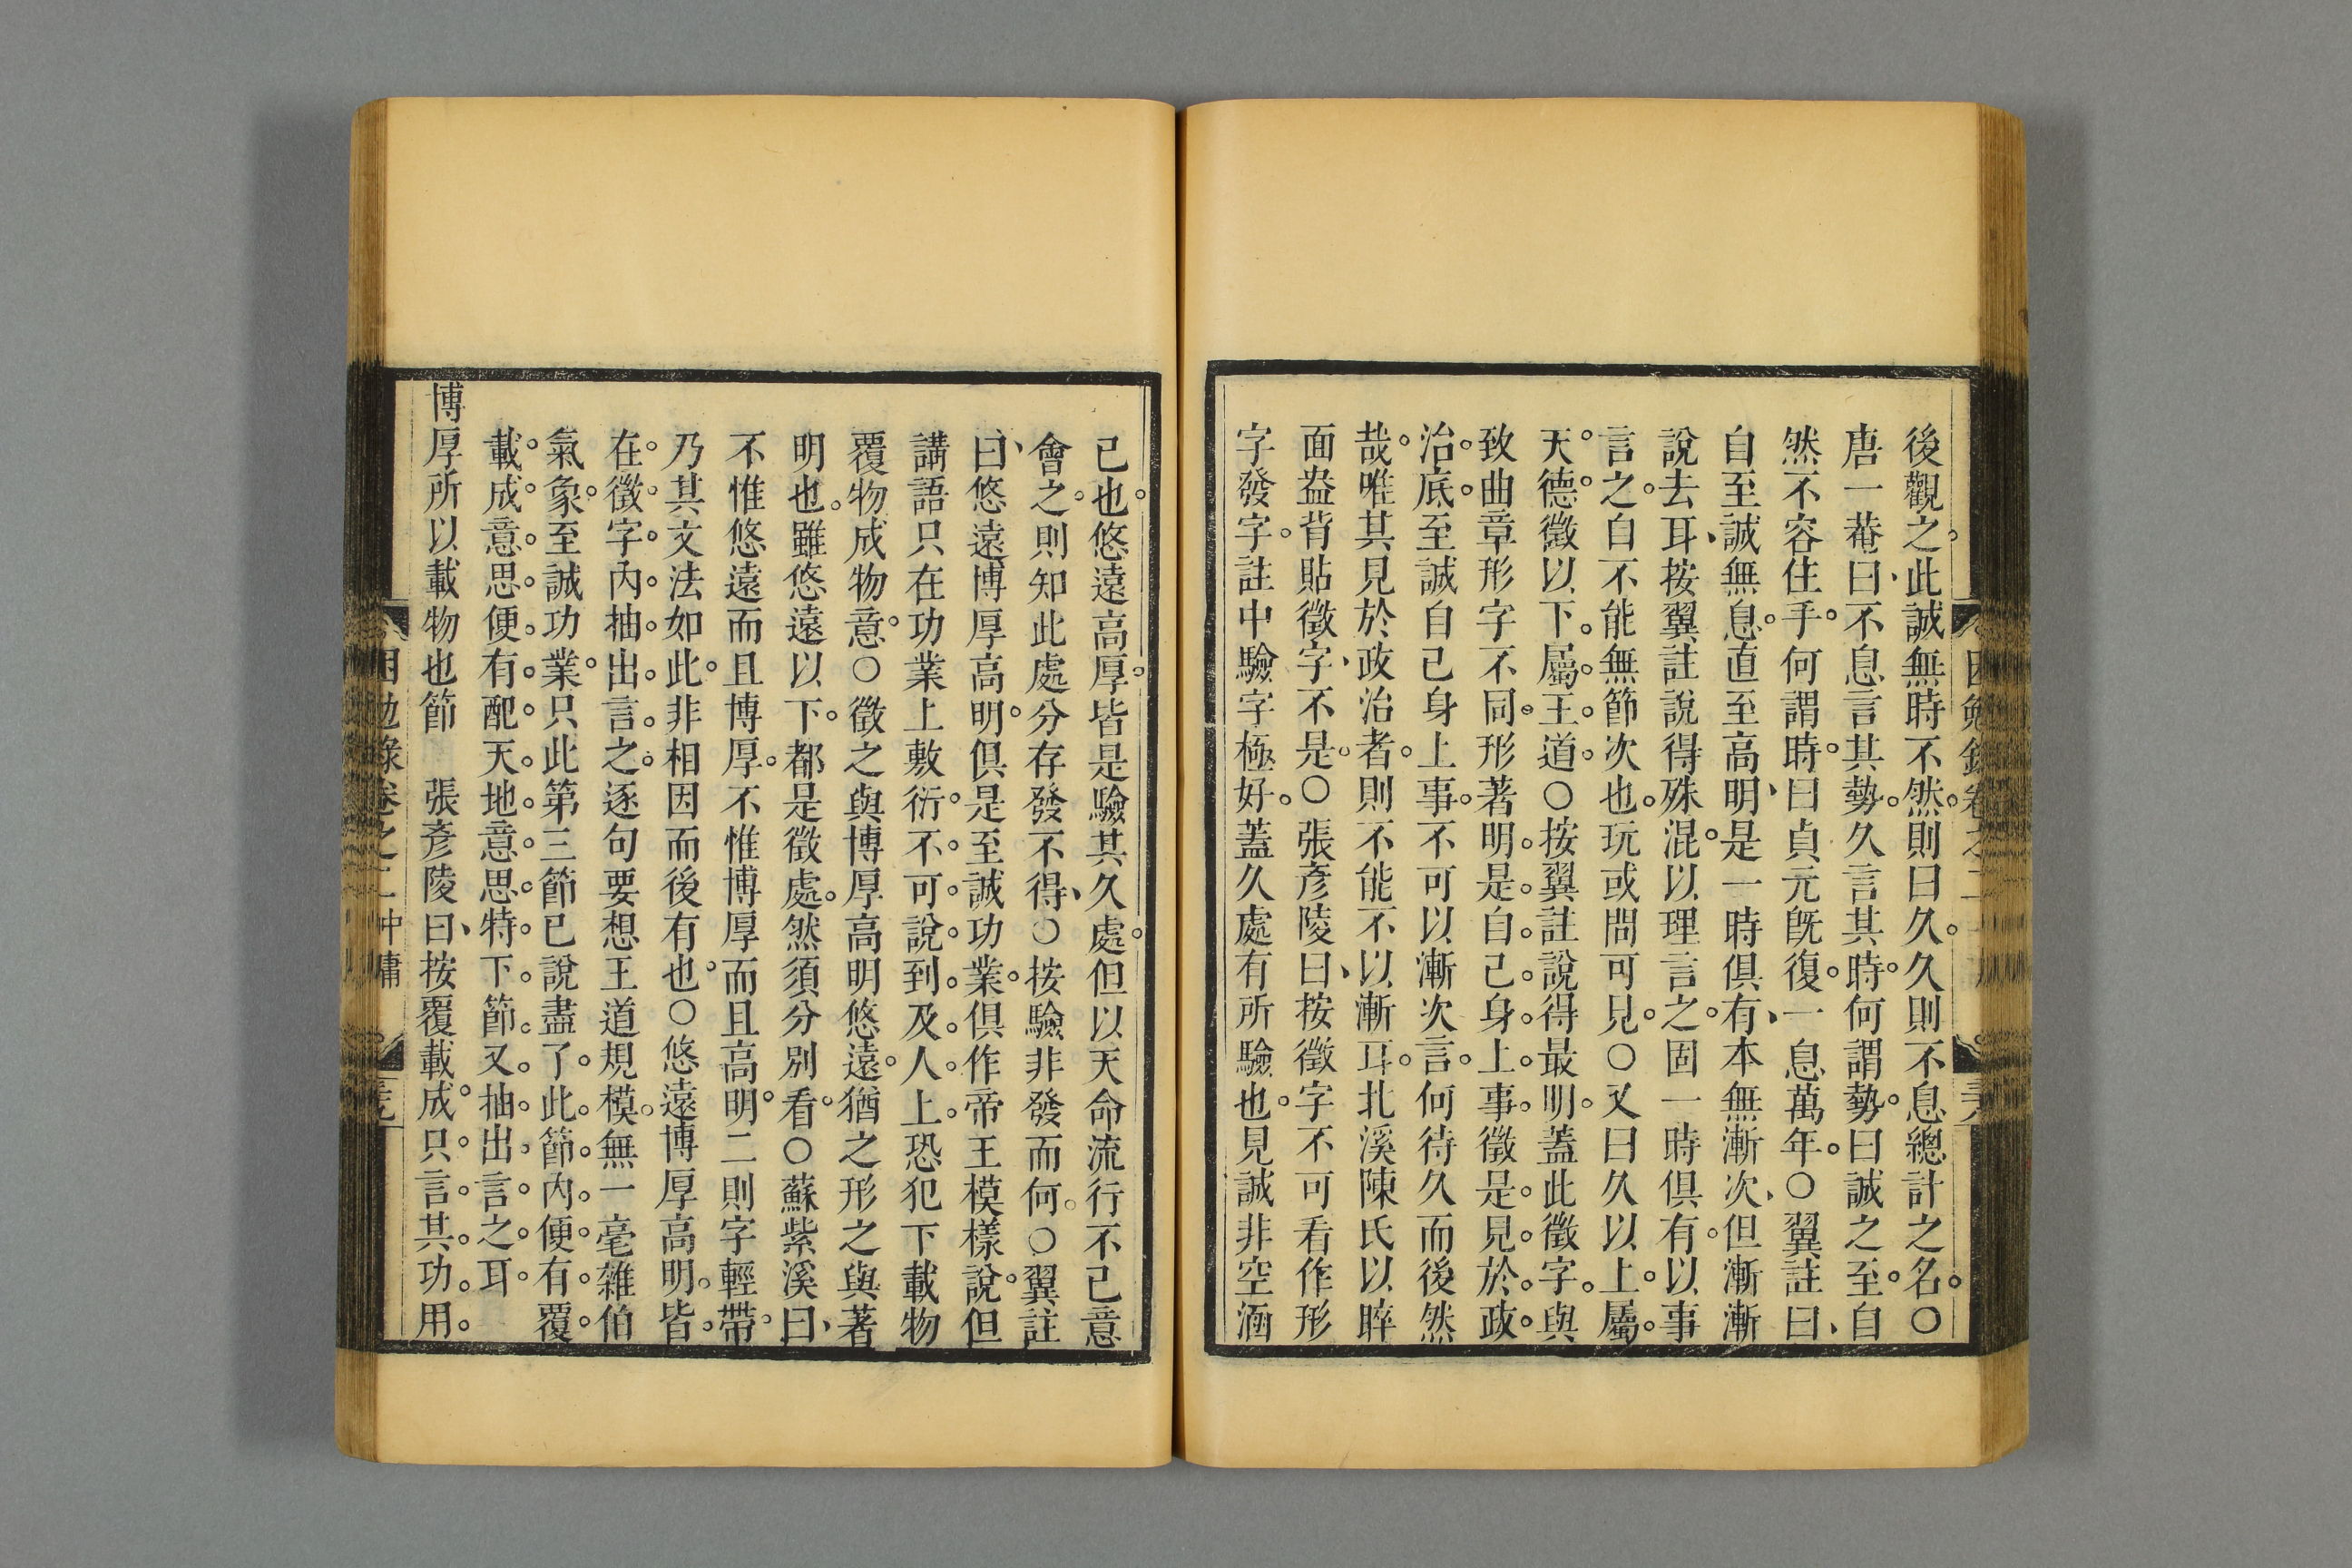 後觀之。此誠無時不然。則曰久。久則不息總計之名。○
唐一菴曰、不息言其勢。久言其時。何謂勢。曰誠之至。自
然不容住手。何謂時。曰貞元旣復。一息萬年。○翼註曰、
自至誠無息。直至高明、是一時俱有、本無漸次、但漸漸
說去耳、按翼註說得殊混。以理言之。固一時俱有。以事
言之。自不能無節次也。玩或問可見。○又曰久以上。屬。
天。德。徵以下。屬。王。道。○按翼註說得最明。蓋此徵字。與
致曲章形字不同。形著明。是。自。己。身。上。事。徵是。見。於。政。
治。底。至誠自己身上事。不可以漸次言。何待久而後然
哉。唯其見於政治者。則不能不以漸耳。北溪陳氏以睟
面盎背貼徵字、不是。○張彥陵曰、按徵字不可看作形
字發字。註中驗字極好。蓋久處有所驗也。見誠非空涵
已也。悠遠高厚。皆是驗其久處。但以天命流行不已意
會之。則知此處分存發不得、○按驗非發而何。○翼註
曰、悠遠博厚高明。俱是至誠功業。俱作帝王模樣說。但
講語只在功業上敷衍。不。可。說。到。及。人。上。恐犯下載物
覆物成物意。○徵之與博厚高明悠遠。猶之形之與著
明也。雖悠遠以下。都是徵處。然須分別看。○蘇紫溪曰、
不惟悠遠而且博厚。不惟博厚而且高明。二則字輕帶。
乃其文法如此。非相因而後有也。○悠遠博厚高明。皆。
在。徵。字。內。抽。出。言。之。逐句要想王道規模。無一毫雜伯
氣象。至誠功業。只此第三節已說盡了。此。節。內。便。有。覆。
載。成。意。思。便。有。配。天。地。意。思。特。下。節。又。抽。出。言。之。耳。
博厚所以載物也節　張彥陵曰、按覆載成。只。言。其。功。用。
困勉錄卷之二　中庸